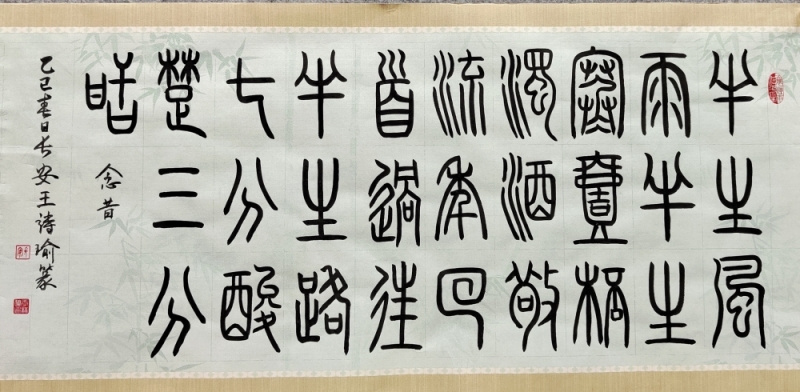 半生風
雨半生
寒壹桮
濁酒敬
流年回
首過往
半生路
七分酸
楚三分
甛
念昔
乙巳春日长安王诗瑜篆